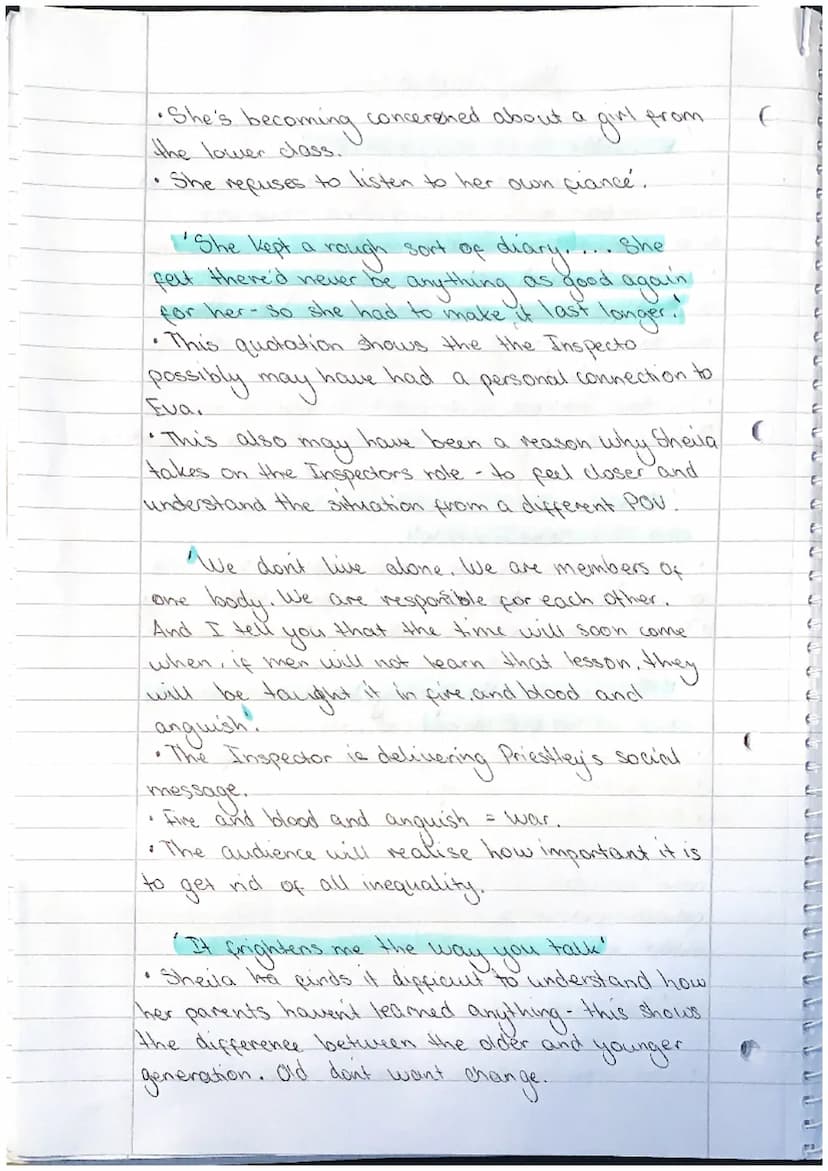 • She's becoming concerened about a girl from
the lower class.
• She refuses to listen to her own fiancé.
'She kept a rough sort of diary'.... She
felt there'd never be anything as good again
for her - so she had to make it last longer.'
• This quotation shows the the Inspecto
possibly may have had a personal connection to
Eva.
• This also may have been a reason why Sheila
takes on the Inspectors role - to feel closer and
understand the situation from a different POV.
'We don't live alone. We are members of
one body. We are responsible for each other.
And I tell you that the time will soon come
when, if men will not learn that lesson, they
will be taught it in fire, and blood and
anguish'.
• The Inspector is delivering Priestley's social
message.
• Fire and blood and anguish = war.
• The audience will realise how important it is
to get rid of all inequality.
'It frightens me the way you talk'
• Sheila finds it difficult to understand how
her parents haven't learned anything - this shows
the difference between the older and younger
generation. Old don't want change.